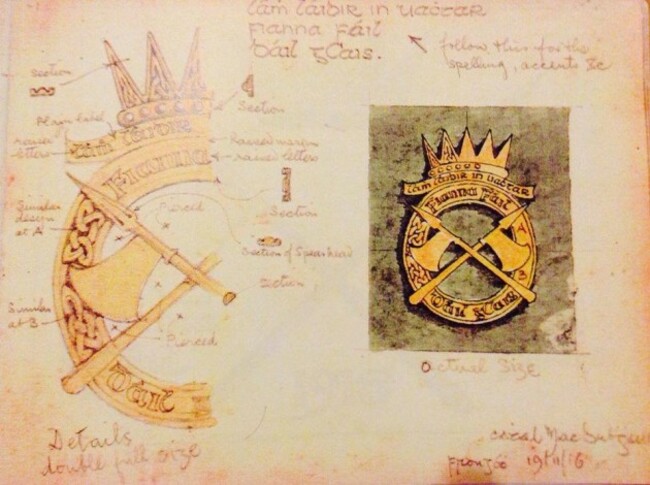 lám láidir in uaċtar
Fianna Fáil
Dáil gCais.
follow this for the
spelling, accents &c
Section
Section
Plain label
raised
letters
lám láidir
Fianna
Raised margin
raised letters
Similar
design
at A
Pierced
Section
Section of Spearhead
Section
Similar
at B
Pierced
Dáil
lám láidir in uaċtar
Fianna Fáil
A
B
Dáil gCais
actual size
Details
double full size
Mac
19/11/16